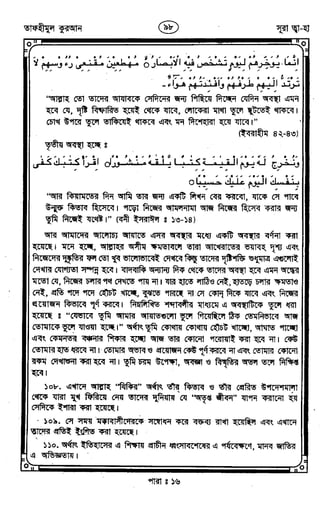 তাফহীমুল কুরআন
৯৮
সূরা ত্বা-হা
إِنَّمَا يُؤَخِّرُهُمْ لِيَوْمٍ تَشْخَصُ فِيهِ الْأَبْصَارُ ۝ مُهْطِعِينَ مُقْنِعِي رُءُوسِهِمْ لَا
يَرْتَدُّ إِلَيْهِمْ طَرْفُهُمْ وَأَفْئِدَتُهُمْ هَوَاءٌ۔
"আল্লাহ তো তাদের আযাবকে সেদিনের জন্য পিছিয়ে দিচ্ছেন যেদিন অবস্থা এমন
হবে যে, দৃষ্টি বিস্ফারিত হয়েই থেকে যাবে, লোকেরা মাথা তুলে ছুটতেই থাকবে।
চোখ উপরে তুলে তাকিয়েই থাকবে এবং মন দিশেহারা হয়ে যাবে।"
(ইবরাহীম ৪২-৪৩)
তৃতীয় অবস্থা হচ্ছে :
وَنُخْرِجُ لَهُ يَوْمَ الْقِيٰمَةِ كِتٰبًا يَلْقٰهُ مَنْشُورًا ۝ اِقْرَأْ كِتٰبَكَ كَفٰى
بِنَفْسِكَ الْيَوْمَ عَلَيْكَ حَسِيبًا ۝
"আর কিয়ামতের দিন আমি তার জন্য একটি লিখন বের করবো, যাকে সে পাবে
উন্মুক্ত কিতাব হিসেবে। পড়ো নিজের আমলনামা আজ নিজের হিসেব করার জন্য
তুমি নিজেই যথেষ্ট।" (বনী ইসরাঈল : ১৩-১৪)
আর আমাদের আলোচ্য আয়াতে এসব অবস্থার মধ্যে একটি অবস্থা বর্ণনা করা
হয়েছে। মনে হচ্ছে, আল্লাহর অসীম ক্ষমতাবলে তারা আখেরাতের ভয়াবহ দৃশ্য এবং
নিজেদের দুষ্কৃতির ফল তো খুব ভালোভাবেই দেখবে কিন্তু তাদের দৃষ্টিশক্তি শুধুমাত্র এগুলোই
দেখার যোগ্যতা সম্পন্ন হবে। বাদবাকি অন্যান্য দিক থেকে তাদের অবস্থা হবে এমন অন্ধের
মতো যে, নিজের চলার পথ দেখতে পায় না। যার হাতে লাঠিও নেই, হাতড়ে চলার ক্ষমতাও
নেই, প্রতি পদে পদে হোঁচট খাচ্ছে, বুঝতে পারছে না সে কোন্ দিকে যাবে এবং নিজের
প্রয়োজন কিভাবে পূর্ণ করবে। নিম্নলিখিত শব্দাবলীর মাধ্যমে এ অবস্থাটিকে তুলে ধরা
হয়েছে : "যেভাবে তুমি আমার আয়াতগুলো ভুলে গিয়েছিলে ঠিক তেমনিভাবে আজ
তোমাকে ভুলে যাওয়া হচ্ছে।" অর্থাৎ তুমি কোথায় কোথায় হোঁচট খাচ্ছো, আঘাত পাচ্ছো
এবং কেমনতর বঞ্চনার শিকার হচ্ছো আজ তার কোনো পরোয়াই করা হবে না। কেউ
তোমার হাত ধরবে না। তোমার অভাব ও প্রয়োজন কেউ পূর্ণ করবে না এবং তোমার কোনো
রকম দেখাশুনা করা হবে না। তুমি চরম উপেক্ষা, অবজ্ঞা ও বিস্মৃতির অতল তলে নিক্ষিপ্ত
হবে।
১০৮. এখানে আল্লাহ "যিকির" অর্থাৎ তাঁর কিতাব ও তাঁর প্রেরিত উপদেশমালা
থেকে যারা মুখ ফিরিয়ে নেয় তাদের দুনিয়ায় যে "অতৃপ্ত জীবন" যাপন করানো হয়
সেদিকে ইশারা করা হয়েছে।
১০৯. সে সময় মক্কাবাসীদেরকে সম্বোধন করে বক্তব্য রাখা হয়েছিল এবং এখানে
তাদের প্রতিই ইংগিত করা হয়েছে।
১১০. অর্থাৎ ইতিহাসের এ শিক্ষায় প্রাচীন ধ্বংসাবশেষের এ পর্যবেক্ষণে, মানব জাতির
এ অভিজ্ঞতায়।
পারা : ১৬